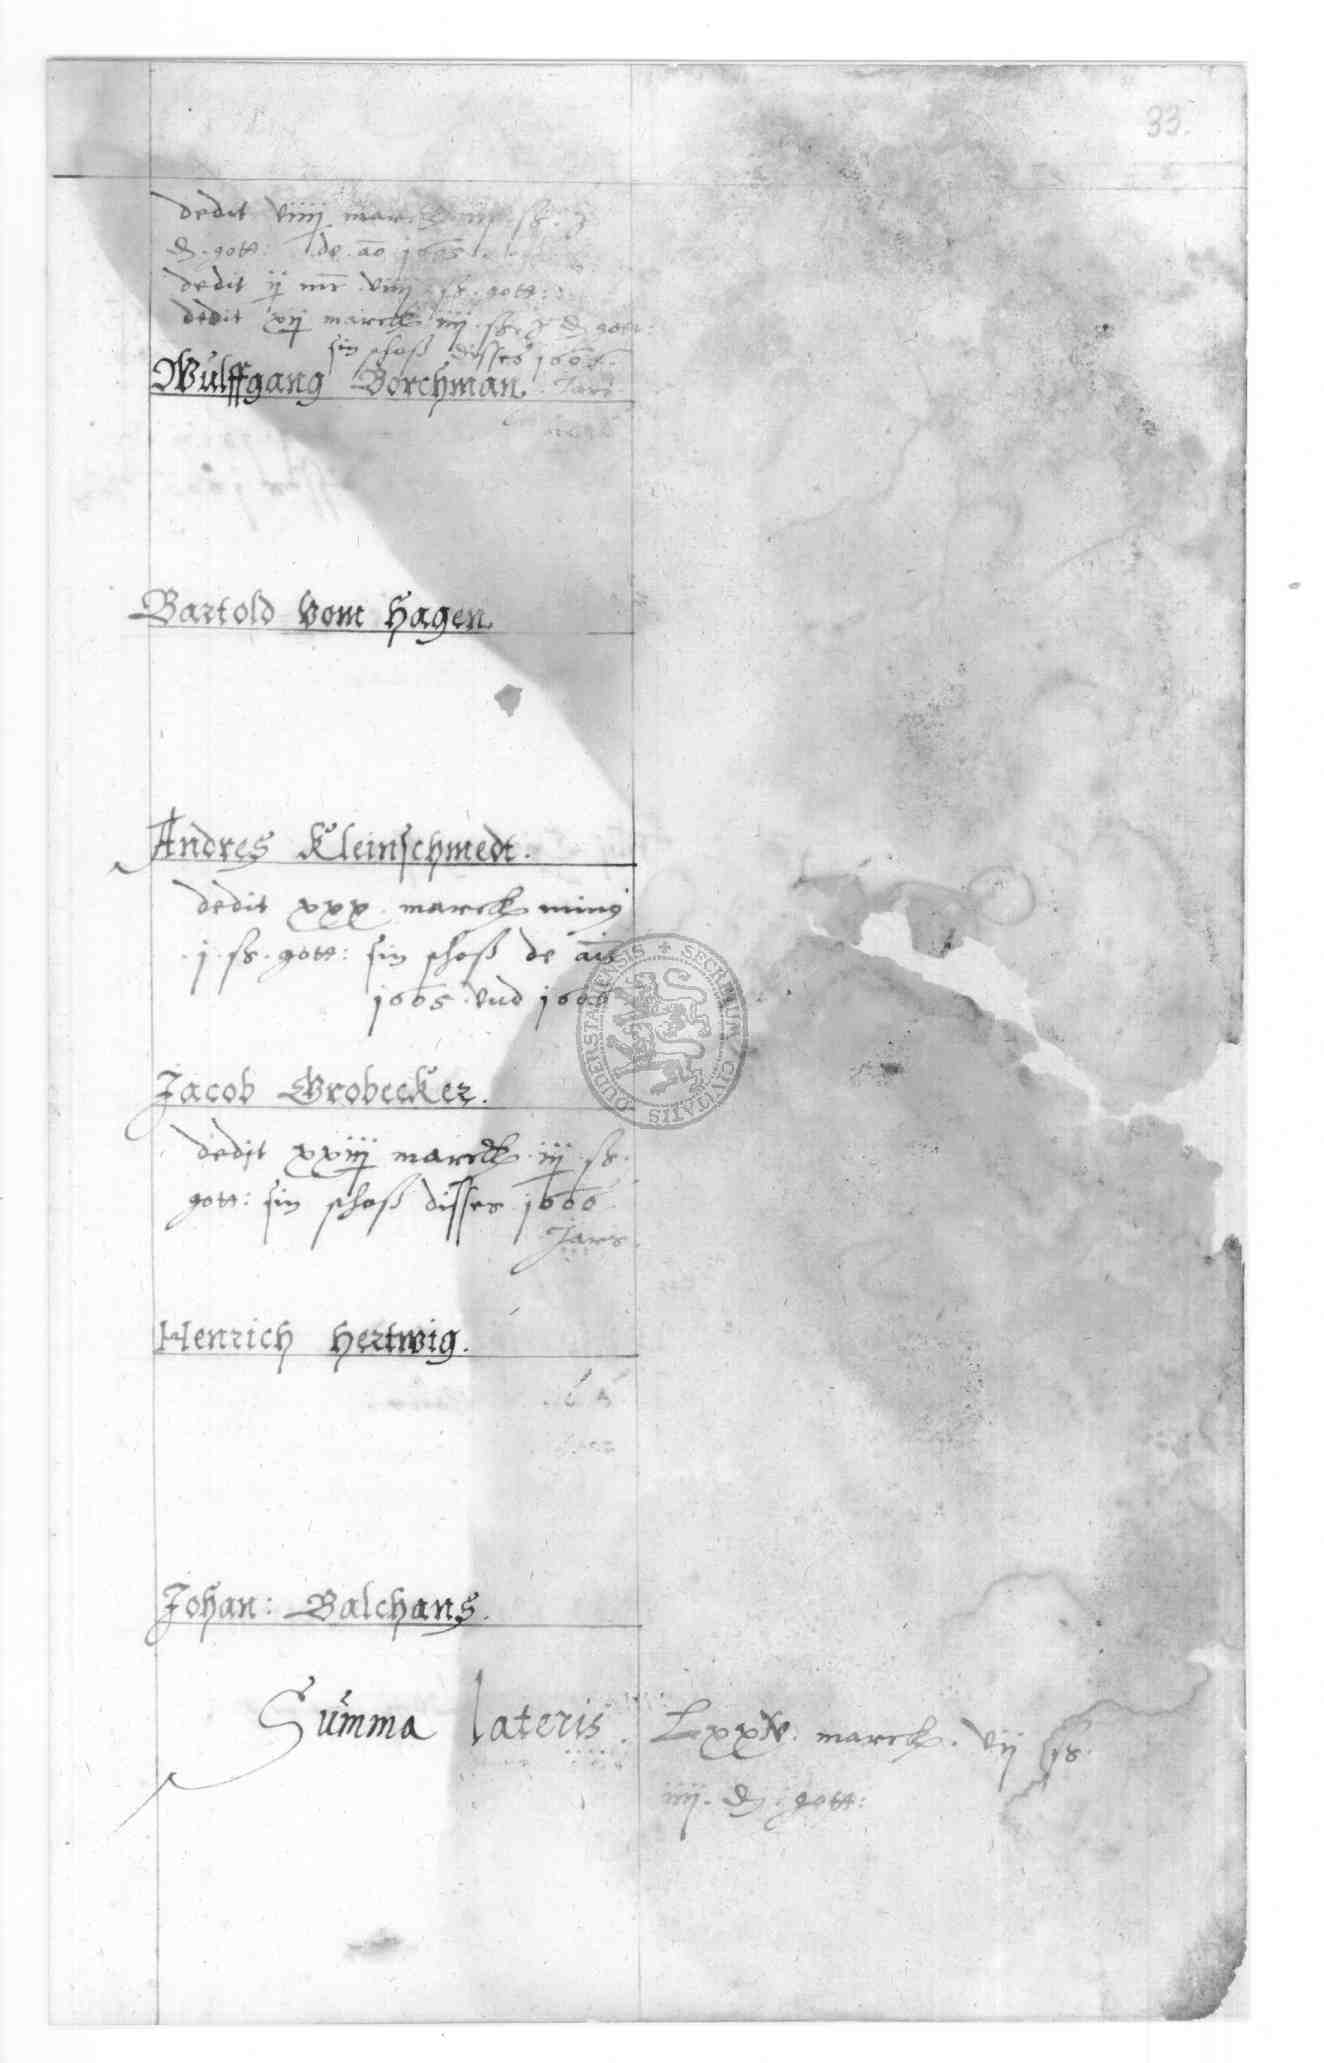 33.
dedit viiij marck iiij ß. 3
₰. gott: de ao 1605.
dedit ij mr. viiij ß. gott:
dedit xij marck iiij ß. ₰ gott:
sin schoß disses 1606.
Wulffgang Borchman. Jars
Bartold Vom Hagen.
Andres Kleinschmedt.
dedit xxx. marck min9
.j. ß. gott: sin schoß de ais
1605. vnd 1606
Jacob Grobecker.
dedit xxiiij marck. iij. ß.
gott: sin schoß disses 1606
Jars.
Henrich Hertwig.
Johan: Balchans.
Summa lateris. Lxxx. marck. vij ß.
iiij. ₰. gott:
SECRETUM CIVITATIS DUDERSTADENSIS